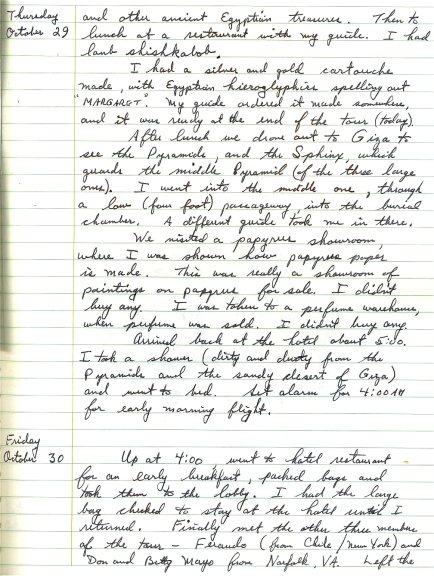 Thursday and other ancient Egyptian treasures. Then to
October 29 lunch at a restaurant with my guide. I had
lamb shishkabob.
I had a silver and gold cartouche
made, with Egyptian hieroglyphics spelling out
"MARGARET". My guide ordered it made somewhere,
and it was ready at the end of the tour (today).
After lunch we drove out to Giza to
see the Pyramids, and the Sphinx, which
guards the middle Pyramid (of the three large
ones). I went into the middle one, through
a low (four foot) passageway, into the burial
chamber. A different guide took me in there.
We visited a papyrus showroom,
where I was shown how papyrus paper
is made. This was really a showroom of
paintings on papyrus for sale. I didn't
buy any. I was taken to a perfume warehouse,
where perfume was sold. I didn't buy any.
Arrived back at the hotel about 5:00.
I took a shower (dirty and dusty from the
Pyramids and the sandy desert of Giza)
and went to bed. Set alarm for 4:00 AM
for early morning flight.
Friday
October 30 Up at 4:00, went to hotel restaurant
for an early breakfast, packed bags and
took them to the lobby. I had the large
bag checked to stay at the hotel until I
returned. Finally met the other three members
of the tour - (from Chile/New York) and
Don and Betty Mayo from Norfolk, VA. Left the